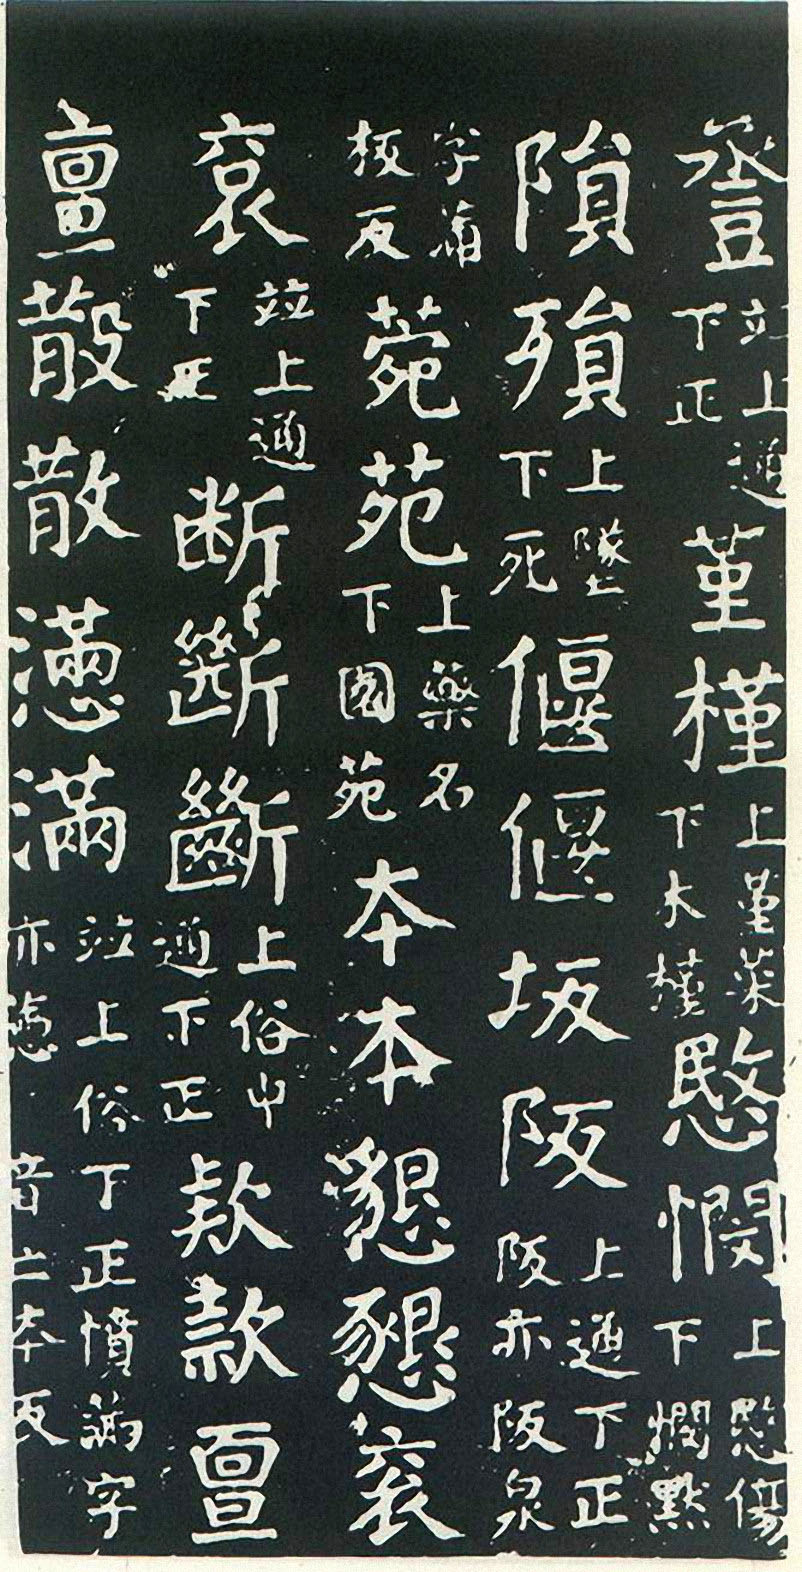 並上通下正堇槿上堇菜下木槿愍憫上愍傷下憫默
隕殞上墜下死偃偃坂阪上通下正阪亦阪泉
字蒲板反菀苑上藥名下園苑夲本懇懇衮
衮並上通下正断斷上俗中通下正欵款亶
亶散散懣滿並上俗下正憤滿字亦懣音亡本反